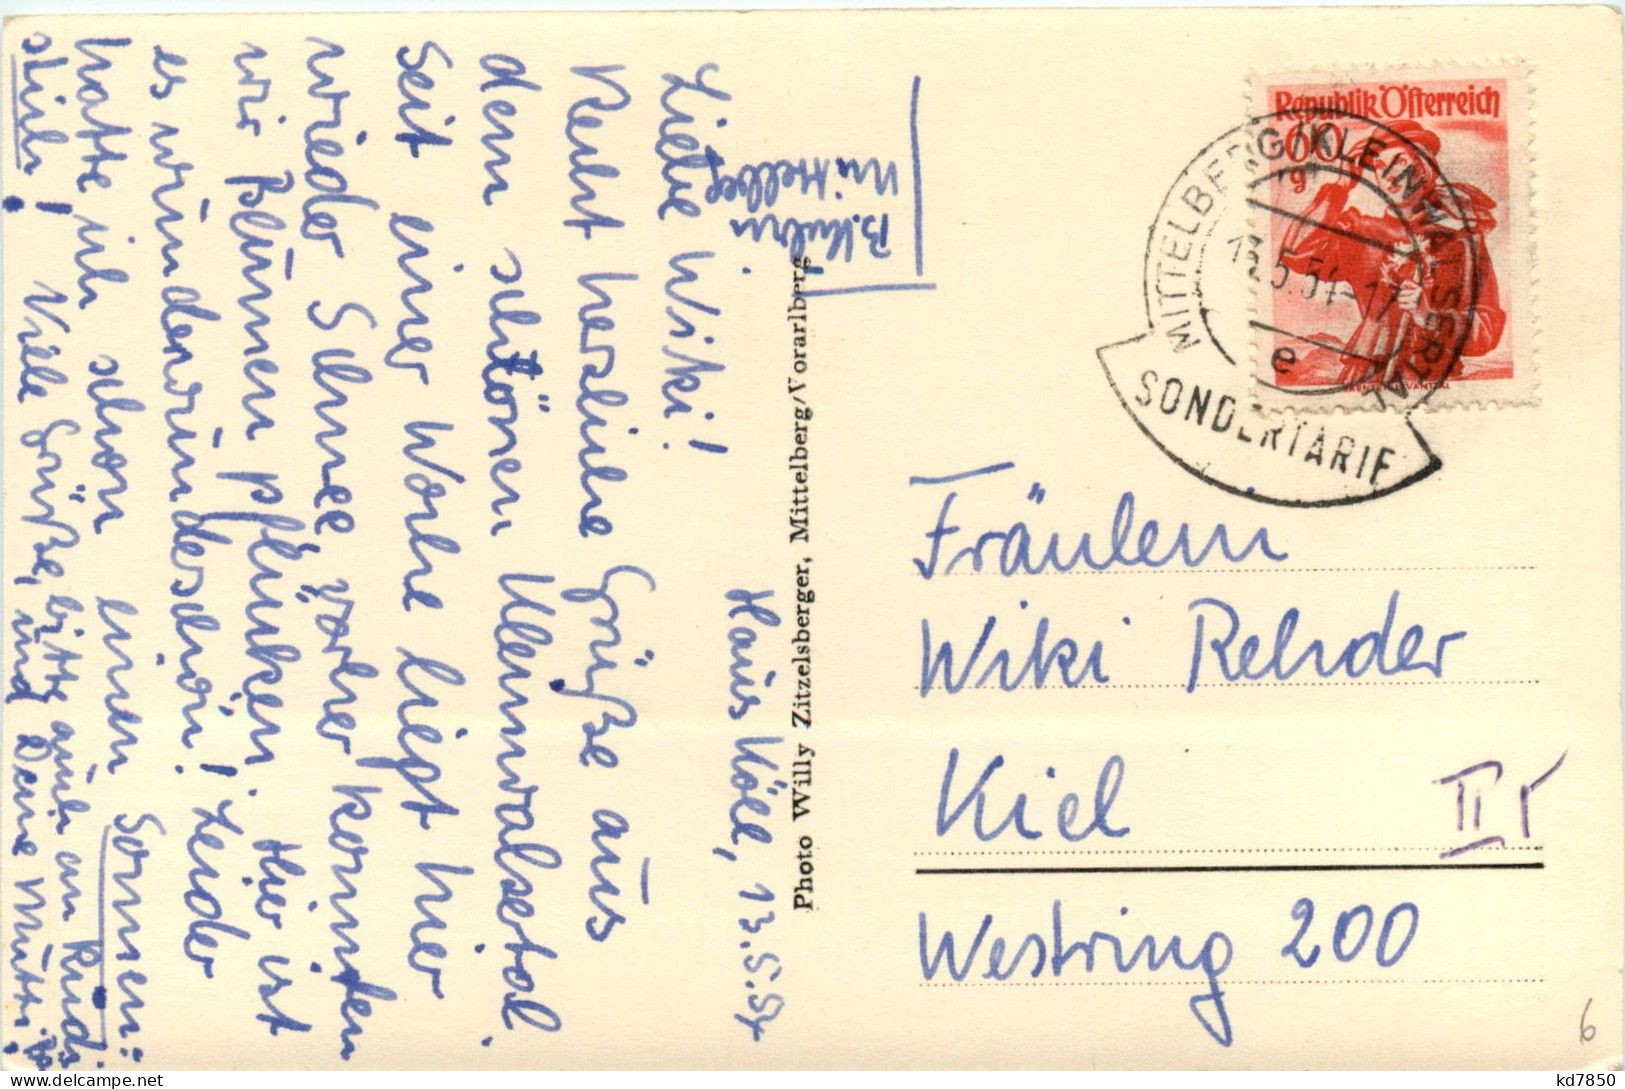 Haus Köll, 13.5.54
Liebe Wiki!
Recht herzliche Grüße aus
dem schönen Kleinwalsertal.
Seit einer Woche liegt hier
wieder Schnee, vorher konnten
wir Blumen pflücken. Hier ist
es wunderwunderschön! Leider
hatte ich schon einen Sonnen-
stich! Viele Grüße, bitte auch an Rudi
und Deine Mutti
Mittelbg
Photo Willy Zitzelsberger, Mittelberg/Vorarlberg
Republik Österreich
60
g
MITTELBERG/KLEINWALSERTAL
13.5.54-17
e
SONDERTARIF
Fräulein
Wiki Rehder
Kiel
Westring 200
6
kd7850